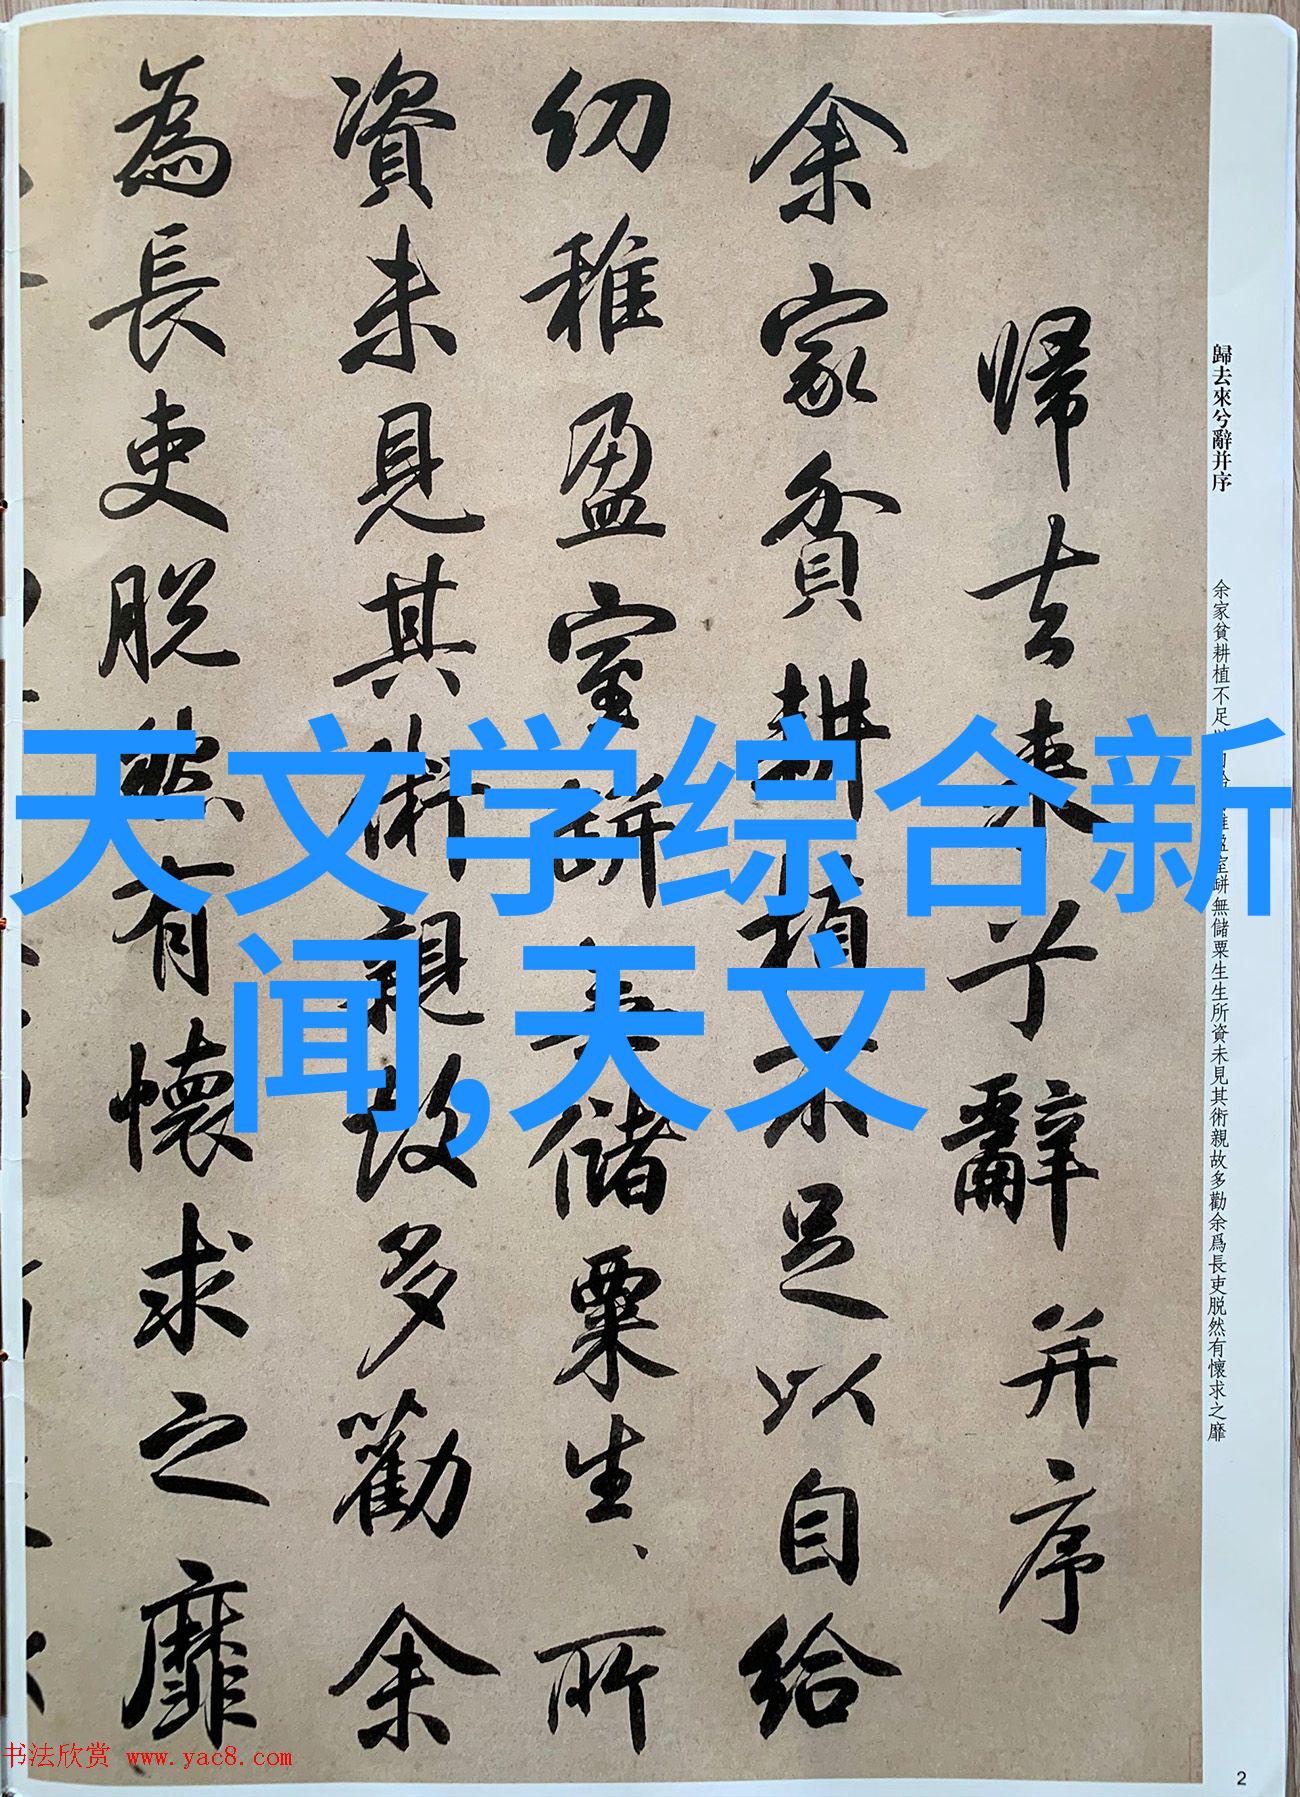 天文学综合新
闻,天文
歸去來兮辭并序
余家貧耕植不足以自給幼稚盈室缾無儲粟生生所資未見其術親故多勸余爲長吏脱然有懷求之靡
帰去来兮辭并序
余家貧耕植不足以自給
幼稚盈室缾無儲粟生、所
資未見其術親故多勸余
為長吏脱然有懷求之靡
书法欣赏 www.yac8.com
2